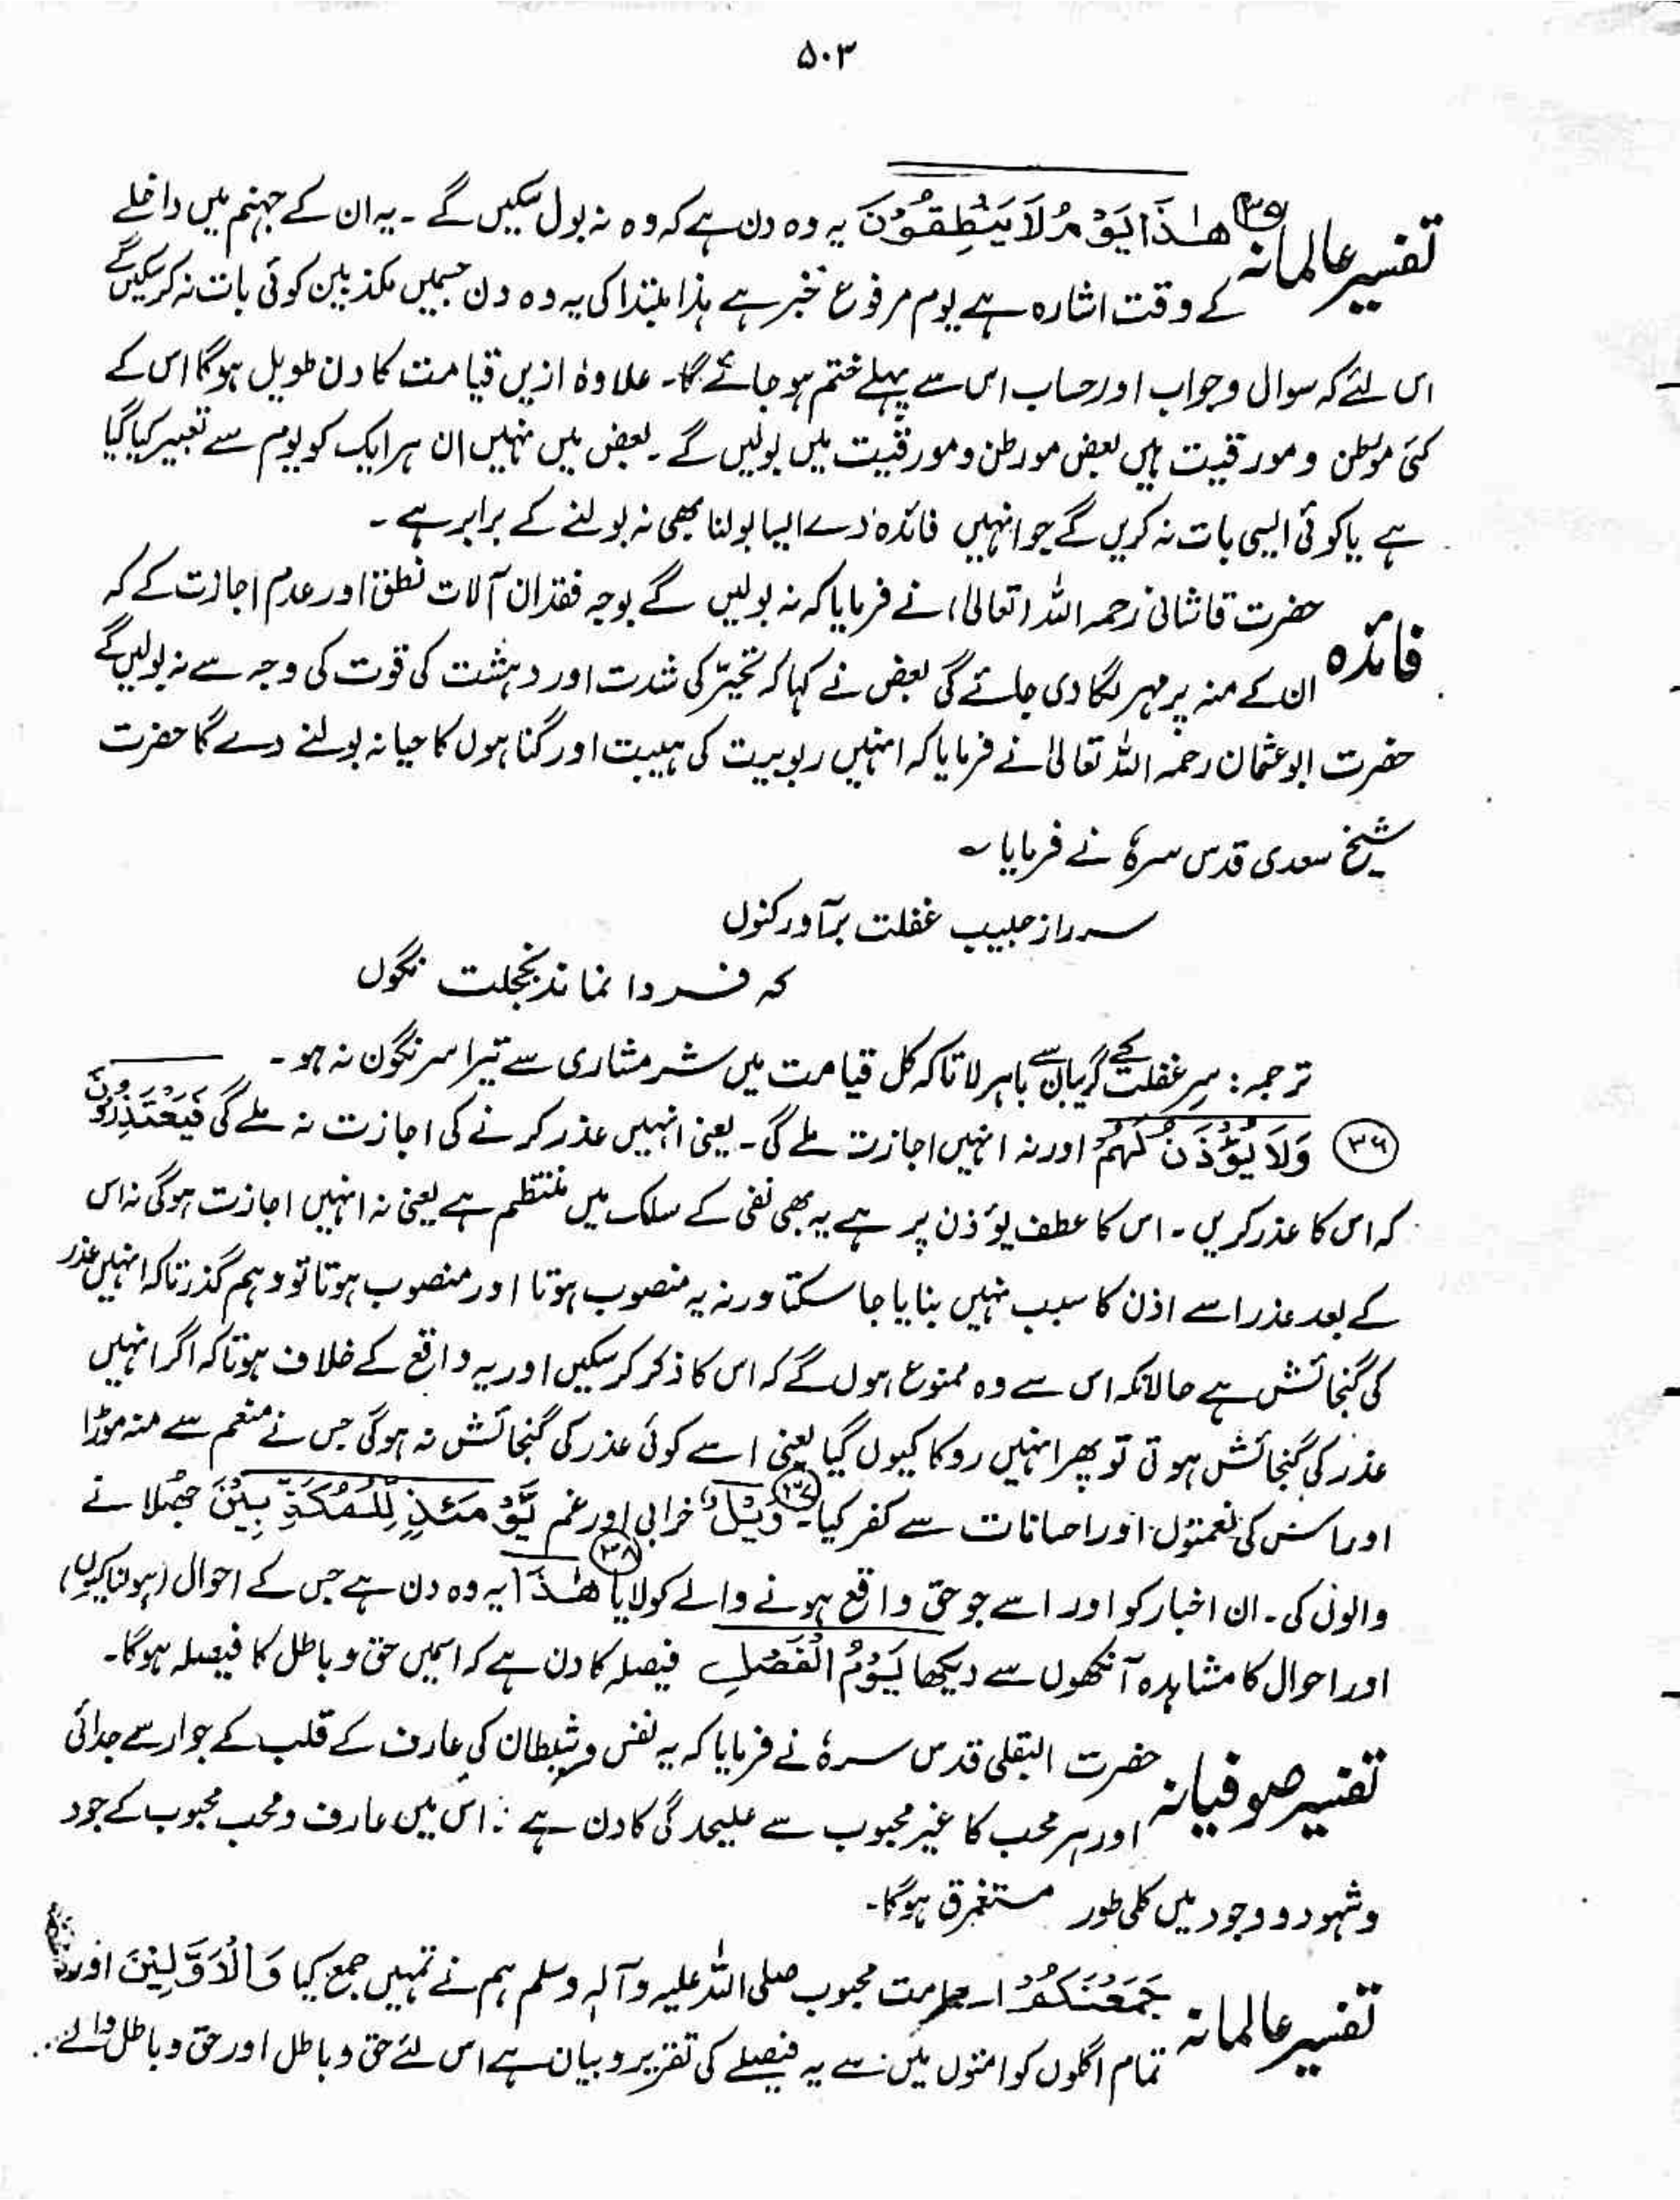 ۵۰۳
تفسیر عالمانہ (۳۵) هٰذَا يَوْمُ لَا يَنْطِقُوْنَ یہ وہ دن ہے کہ وہ نہ بول سکیں گے ۔ یہ ان کے جہنم میں داخلے
کے وقت اشارہ ہے یوم مرفوع خبر ہے ہذا مبتدا کی یہ وہ دن جسمیں مکذبین کوئی بات نہ کر سکیں گے
اس لئے کہ سوال و جواب اور حساب اس سے پہلے ختم ہو جائے گا۔ علاوہ ازیں قیامت کا دن طویل ہوگا اس کے
کئی موطن و مورقیت ہیں بعض مورطن و مورقیت میں بولیں گے ۔ بعض میں نہیں ان ہر ایک کو یوم سے تعبیر کیا گیا
ہے یا کوئی ایسی بات نہ کریں گے جو انہیں فائدہ دے ایسا بولنا بھی نہ بولنے کے برابر ہے ۔
فائدہ حضرت قاشانی رحمہ اللہ (تعالیٰ) نے فرمایا کہ نہ بولیں گے بوجہ فقدان آلات نطق اور عدم اجازت کے کہ
ان کے منہ پر مہر لگا دی جائے گی بعض نے کہا کہ تحیّر کی شدت اور دہشت کی قوت کی وجہ سے نہ بولیں گے
حضرت ابو عثمان رحمہ اللہ تعالیٰ نے فرمایا کہ انہیں ربوبیت کی ہیبت اور گناہوں کا حیا نہ بولنے دے گا حضرت
شیخ سعدی قدس سرہٗ نے فرمایا ؎
سر از جیب غفلت برآور کنوں
کہ فردا نماند بخجلت نگوں
ترجمہ : سر غفلت کے گریبان سے باہر لا تاکہ کل قیامت میں شرمشاری سے تیرا سر نگون نہ ہو ۔
(۳۶) وَلَا يُؤْذَنُ لَهُمْ اور نہ انہیں اجازت ملے گی ۔ یعنی انہیں عذر کرنے کی اجازت نہ ملے گی فَيَعْتَذِرُوْنَ
کہ اس کا عذر کریں ۔ اس کا عطف یؤذن پر ہے یہ بھی نفی کے سلک میں منتظم ہے یعنی نہ انہیں اجازت ہوگی نہ اس
کے بعد عذر اسے اذن کا سبب نہیں بنایا جا سکتا ورنہ یہ منصوب ہوتا اور منصوب ہوتا تو وہم گذرتا کہ انہیں عذر
کی گنجائش ہے حالانکہ اس سے وہ ممنوع ہوں گے کہ اس کا ذکر کر سکیں اور یہ واقع کے خلاف ہوتا کہ اگر انہیں
عذر کی گنجائش ہوتی تو پھر انہیں روکا کیوں گیا یعنی اسے کوئی عذر کی گنجائش نہ ہوگی جس نے منعم سے منہ موڑا
اور اس کی نعمتوں اور احسانات سے کفر کیا۔ (۳۷) وَيْلٌ خرابی اور غم يَّوْمَئِذٍ لِّلْمُكَذِّبِيْنَ جھٹلانے
والوں کی ۔ ان اخبار کو اور اسے جو حق واقع ہونے والے کو لایا (۳۸) هٰذَا یہ وہ دن ہے جس کے احوال (ہولناکیوں)
اور احوال کا مشاہدہ آنکھوں سے دیکھا يَوْمُ الْفَصْلِ فیصلہ کا دن ہے کہ اسمیں حق و باطل کا فیصلہ ہوگا۔
تفسیر صوفیانہ حضرت البقلی قدس سرہٗ نے فرمایا کہ یہ نفس و شیطان کی عارف کے قلب کے جوار سے جدائی
اور ہر محب کا غیر محبوب سے علیحدگی کا دن ہے : اس میں عارف و محب محبوب کے جود
و شہود و وجود میں کلی طور مستغرق ہوگا۔
تفسیر عالمانہ جَمَعْنٰكُمْ اے امت محبوب صلی اللہ علیہ وآلہ وسلم ہم نے تمہیں جمع کیا وَالْاَوَّلِيْنَ اور
تمام اگلوں کو امتوں میں سے یہ فیصلے کی تقریر و بیان ہے اس لئے حق و باطل اور حق و باطل والے